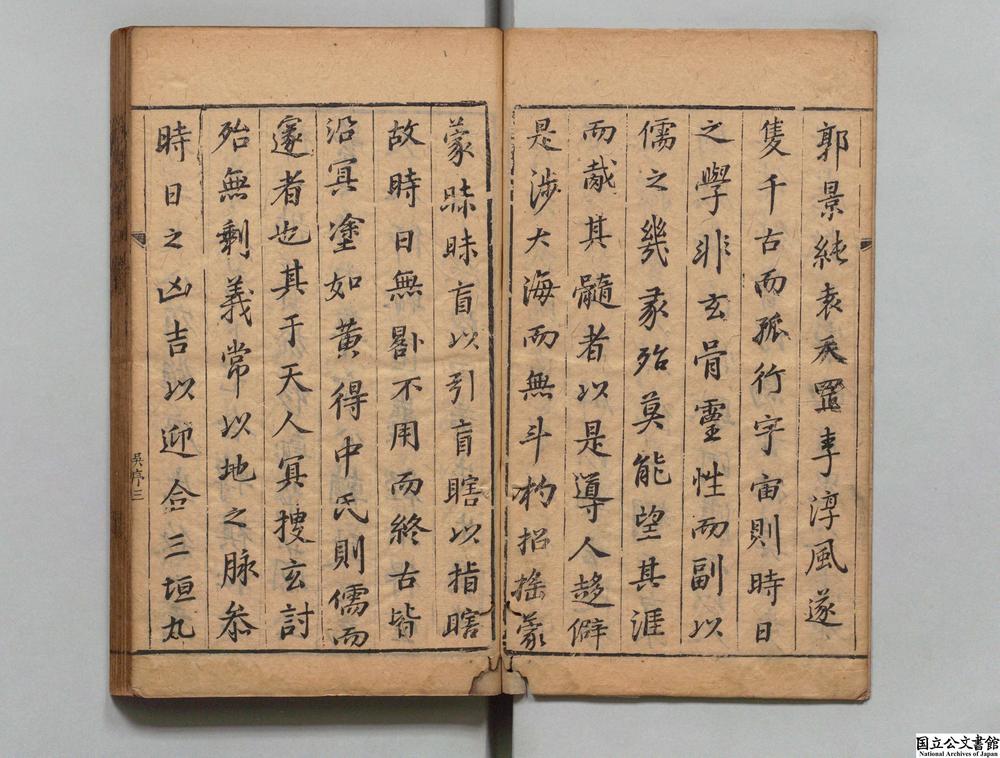 郭景純袁天罡李淳風遂
隻千古而孤行宇宙則時日
之學非玄骨靈性而副以
儒之幾彖殆莫能望其涯
而胾其髓者以是導人趍僻
是涉大海而無斗杓招搖蒙
蒙昧昧盲以引盲瞎以指瞎
故時日無晷不用而終古皆
沿冥塗如黃得中氏則儒而
邃者也其于天人冥搜玄討
殆無剩義常以地之脉叅
時日之凶吉以迎合三垣九
吳序三
国立公文書館
National Archives of Japan